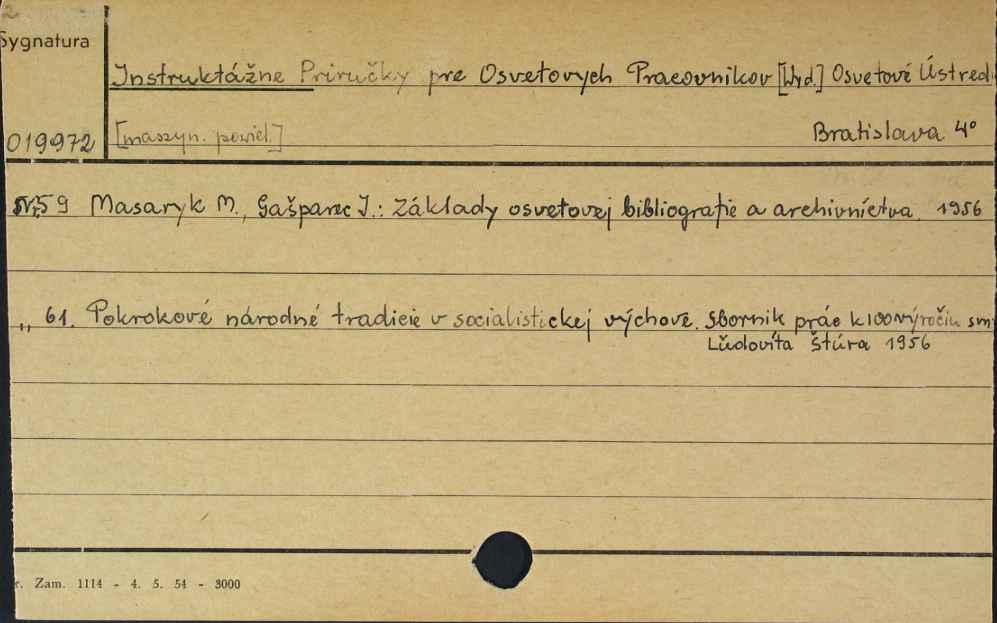 Sygnatura
Instruktážne Priručky pre Osvetovych Pracovnikov [Wyd.] Osvetové Ústred
019972 [maszyn. powiel.] Bratislava 4°
Nr 59 Masaryk M., Gašparec J.: Základy osvetovej bibliografie a archivníctva 1956
„ 61. Pokrokové národné tradicie v socialistickej výchove. Sborník prác k 100 výročiu sm
Ľudovíta Štúra 1956
r. Zam. 1114 - 4. 5. 54 - 3000